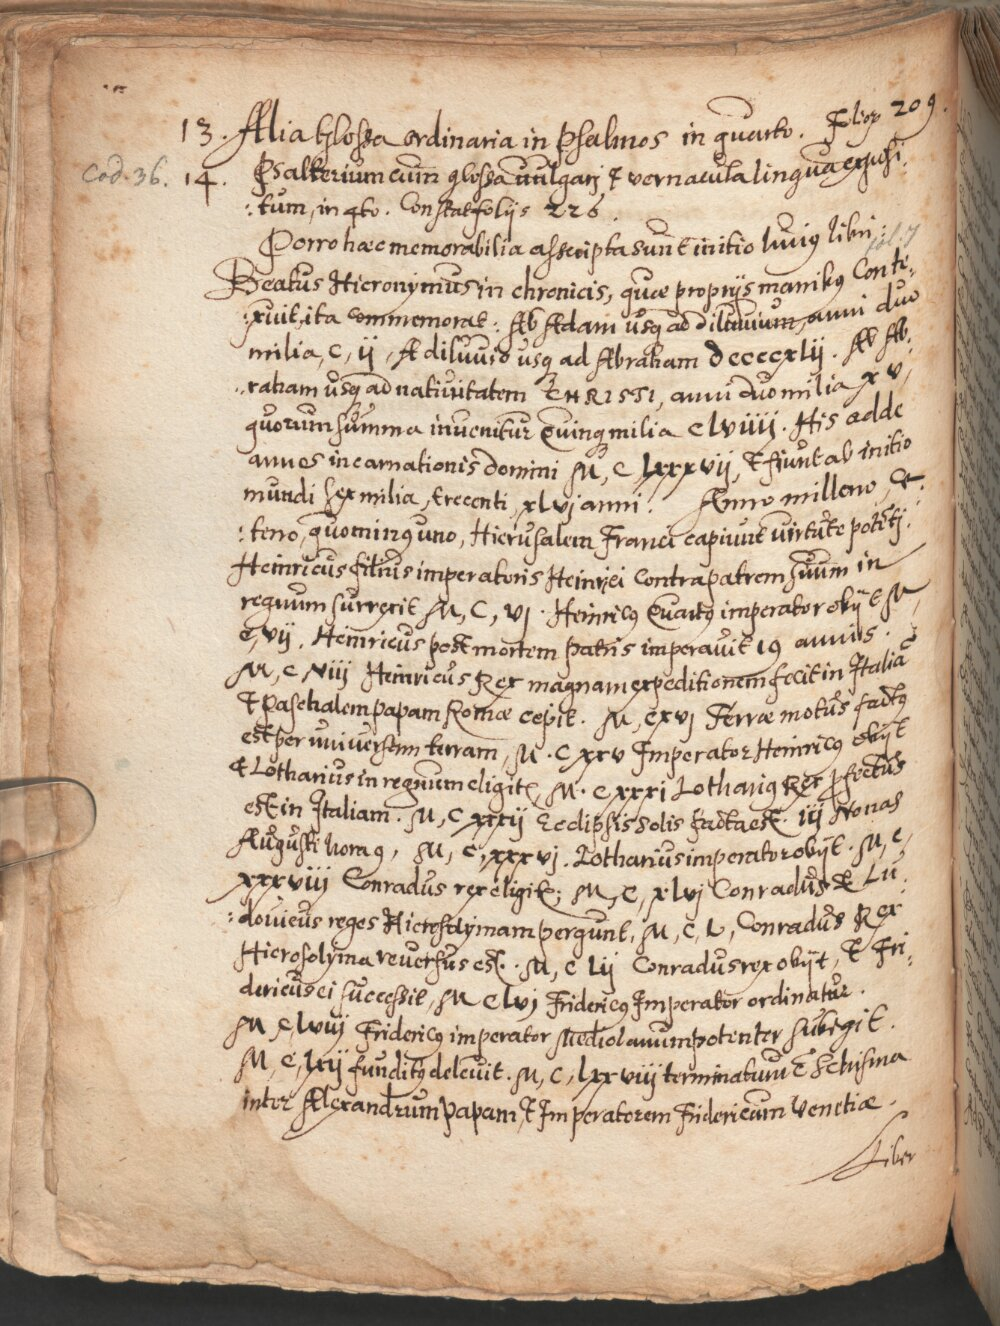 13. Alia Glossa ordinaria in Psalmos in quarto. Folior 209.
Cod. 36. 14. Psalterium cum glossa vulgari & vernacula lingua exposi:
:tum, in 4to. Constat folijs 226.
Porro haec memorabilia asscripta sunt initio huius libri:
fol. 7
Beatus Hieronymus in chronicis, quae proprijs manibus conte:
:xuit, ita commemorat: Ab Adam usq ad diluuium, anni duo
milia, C, ij, A diluuio usq ad Abraham DCCCCXLij. Ab Ab:
:raham usq ad natiuitatem CHRISTI, anni duo milia XV,
quorum summa inuenitur Quinq milia CLViiii. His adde
annos incarnationis domini M, C LXXXVij, & fiunt ab initio
mundi sex milia, trecenti, xlvj anni. Anno milleno, C:
:teno, quo minus uno, Hierusalem Franci capiunt virtute potēti.
Heinricus filius imperatoris Heinrici contra patrem suum in
regnum surrexit M, C, Vj. Heinricus Quartus imperator obijt M,
C, Vij. Heinricus post mortem patris imperauit 19 annis.
M, C Viij Heinricus Rex magnam expeditionem fecit in Italiā
& Paschalem papam Romae cepit. M, CXVj Terrae motus factus
est per uniuersam terram, M. C XXV Imperator Heinricus obijt
& Lotharius in regnum eligit, M. C XXXi Lotharius Rex profectus
est in Italiam. M, C XXXij Ecclipsis solis facta est. iij Nonas
Augusti hora 9, M, C, XXXVj. Lotharius imperator obijt. M, C,
XXXViij Conradus rex eligit; M, C, XLVj Conradus & Lu:
:douicus reges Hierosolymam pergunt, M, C, L, Conradus Rex
Hierosolyma reuersus est. M, C Lij Conradus rex obijt, & Fri:
dericus ei successit, M C LVj Fridericus Imperator ordinatur.
M C LViij Fridericus imperator Mediolanum potenter subegit.
M, C, LXij funditus deleuit. M, C, LXXViij terminatum E Schisma
inter Alexandrum papam, & Imperatorem Fridericum Venetiae.
Liber